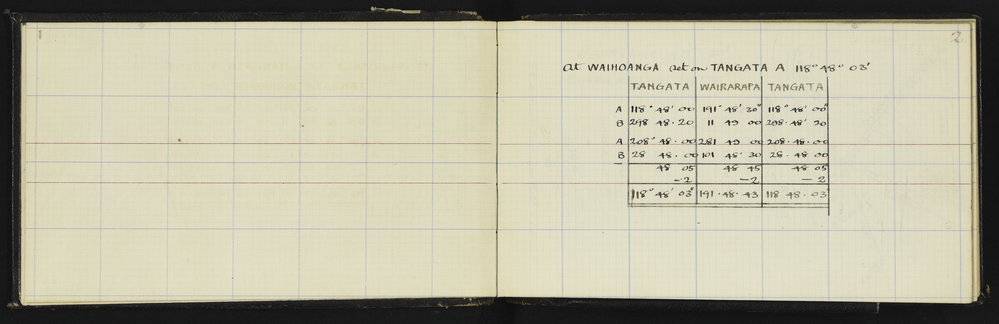 1
2
At WAIHOANGA set on TANGATA A 118° 48" 03'
TANGATA WAIRARAPA TANGATA
A 118° 48' 00 191° 48' 30" 118° 48' 00"
B 298 48. 20 11 49 00 298. 48' 20
A 208° 48. 00 281 49 00 208. 48. 00
B 28 48. 00 101 48' 30 28. 48 00
48 05 48 45 48 05
-2 -2 -2
118° 48' 03" 191. 48. 43 118 48. 03"